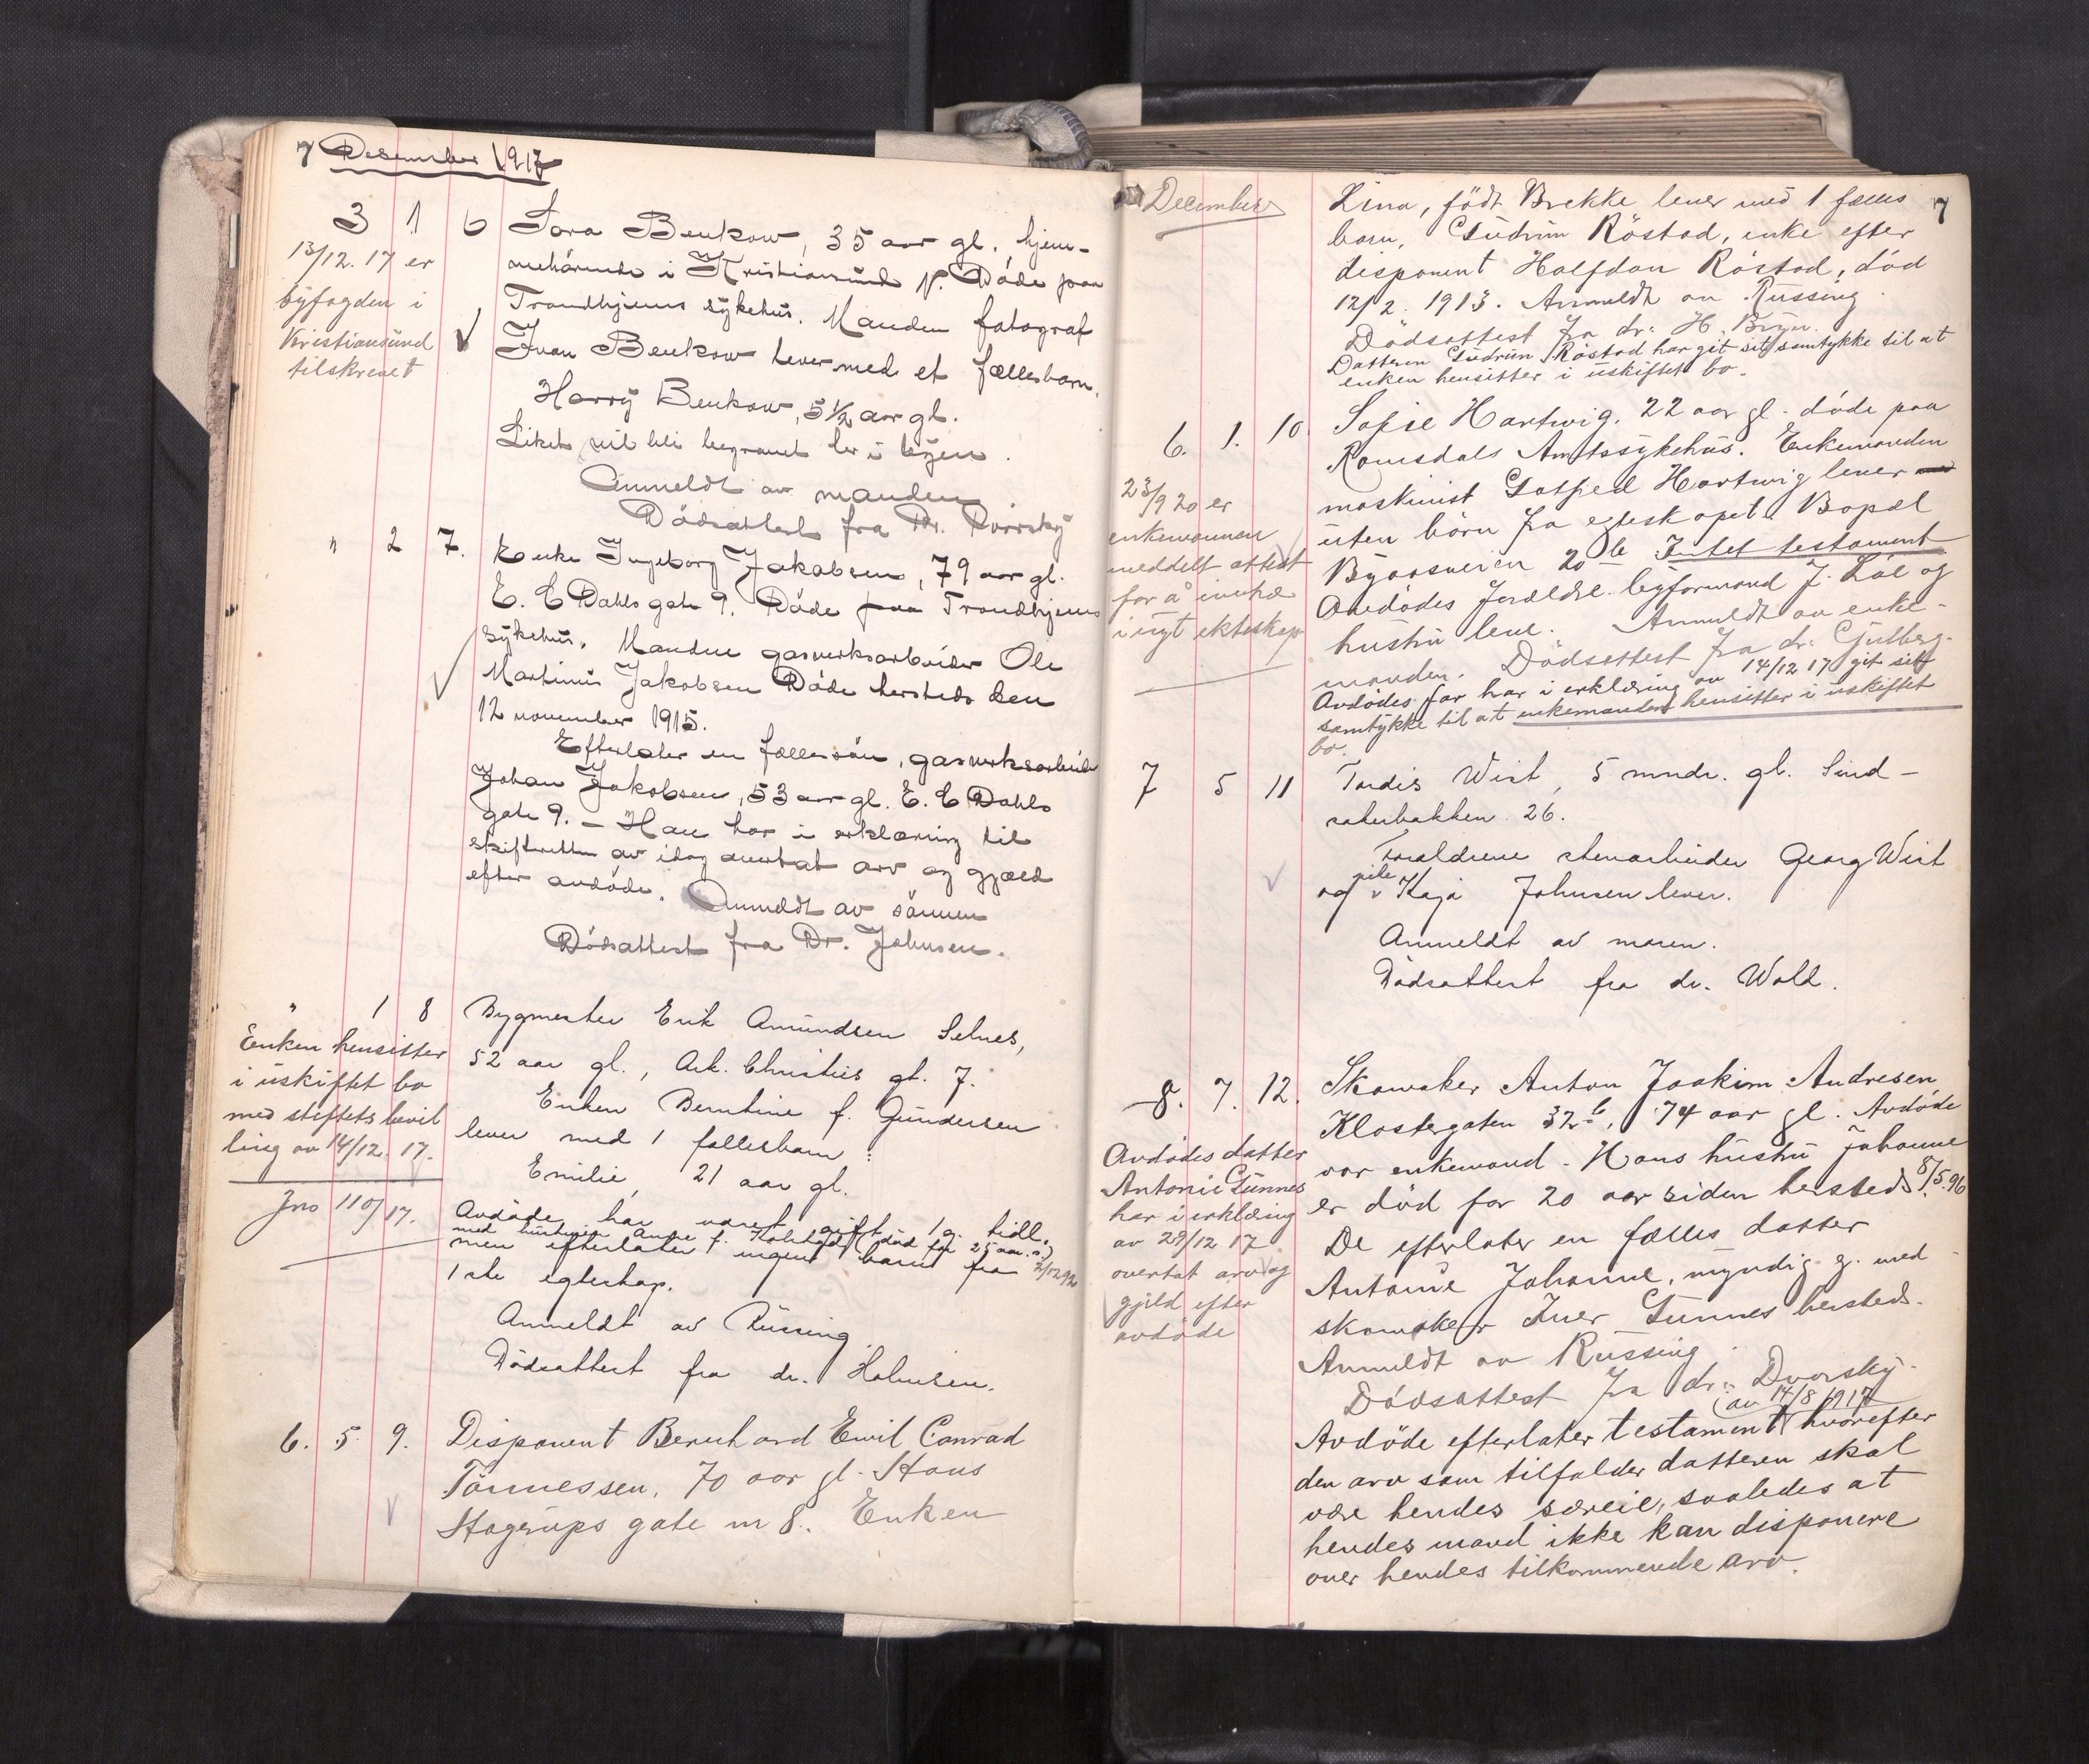 7 Desember 1917
3 1 6 Sara Benkow, 35 aar gl. hjem-
13/12. 17 er
byfogden i
Kristiansund
tilskrevet
mehörende i Kristiansund N. Döde paa
Trondhjems sykehus. Manden fotograf
Ivan Benkow lever med et fællesbarn,
Harry Benkow, 5 1/2 aar gl.
Liket vil bli begravet her i byen.
Anmeldt av manden.
Dödsattest fra Dr. Dvorsky
" 2 7. Enke Ingeborg Jakobsen, 79 aar gl.
E. C Dahls gate 9. Döde paa Trondhjems
sykehus. Manden gasverksarbeider Ole
Martinus Jakobsen Döde hersteds den
12 november 1915.
Efterlater en fællessön, gasverksarbeider
Johan Jakobsen, 53 aar gl. E. C Dahls
gate 9. – Han har i erklæring til
skifteretten av idag overtat arv og gjæld
efter avdöde. Anmeldt av sönnen
Dödsattest fra Dr. Johnsen.
" 1 8 Bygmester Erik Amundsen Selnes,
Enken hensitter
i uskiftet bo
med stiftets bevil
ling av 14/12. 17.
Jno 110/17.
52 aar gl., Ark. Christies gt. 7.
Enken Berntine f. Gundersen
lever med 1 fællesbarn:
Emilie, 21 aar gl.
Avdöde har været gift 1 g. tidl.
med hustruen Anne f. (död for 25 aar s.)
men efterlater ingen barn fra
1ste egteskap.
Anmeldt av Russing.
Dödsattest fra dr. Holmsen.
6. 5. 9. Disponent Bernhard Emil Conrad
Tönnessen, 70 aar gl. Hans
Hagerups gate nr 8. Enken
December
Lina, födt Brekke lever med 1 fælles 7
barn, Gudrun Röstad, enke efter
disponent Halfdan Röstad, död
12/2. 1913. Anmeldt av Russing.
Dödsattest fra dr. H. Bryn.
Datteren Gudrun Röstad har git sit samtykke til at
enken hensitter i uskiftet bo.
6. 1. 10. Sofie Hartwig. 22 aar gl. döde paa
23/9 20 er
enkemannen
meddelt attest
for å inntræ
i nyt ekteskap
Romsdals Amtssykehus. Enkemanden
maskinist Gotfred Hartwig lever
uten börn fra egteskapet. Bopæl
Byaasveien 20 b Intet testament
Avdödes forældre byformand J. Löe og
hustru leve. Anmeldt av enke-
manden. Dödsattest fra dr. Gjulberg.
Avdödes far har i erklæring av 14/12 17 git sit
samtykke til at enkemanden hensitter i uskiftet
bo.
7 5 11 Tordis Wist, 5 mndr. gl. Sind-
sakerbakken 26.
Forældrene stenarbeider Georg Wist
og pike Kaja Johnsen lever.
Anmeldt av moren.
Dödsattest fra dr. Wold.
8. 7. 12. Skomaker Anton Joakim Andresen
Avdödes datter
Antonie Gunnes
har i erklæring
av 29/12 17
overtat arv og
gjeld efter
avdöde
Klostergaten 32 b, 74 aar gl. Avdöde
var enkemand. Hans hustru Johanne
er död for 20 aar siden hersteds 8/5.96
De efterlater en fælles datter
Antonie Johanne, myndig g. med
skomaker Iver Gunnes hersteds.
Anmeldt av Russing
Dödsattest fra dr. Dvorsky.
(av 14/8 1917
Avdöde efterlater testament hvorefter
den arv som tilfalder datteren skal
være hendes særeie, saaledes at
hendes mand ikke kan disponere
over hendes tilkommende arv.